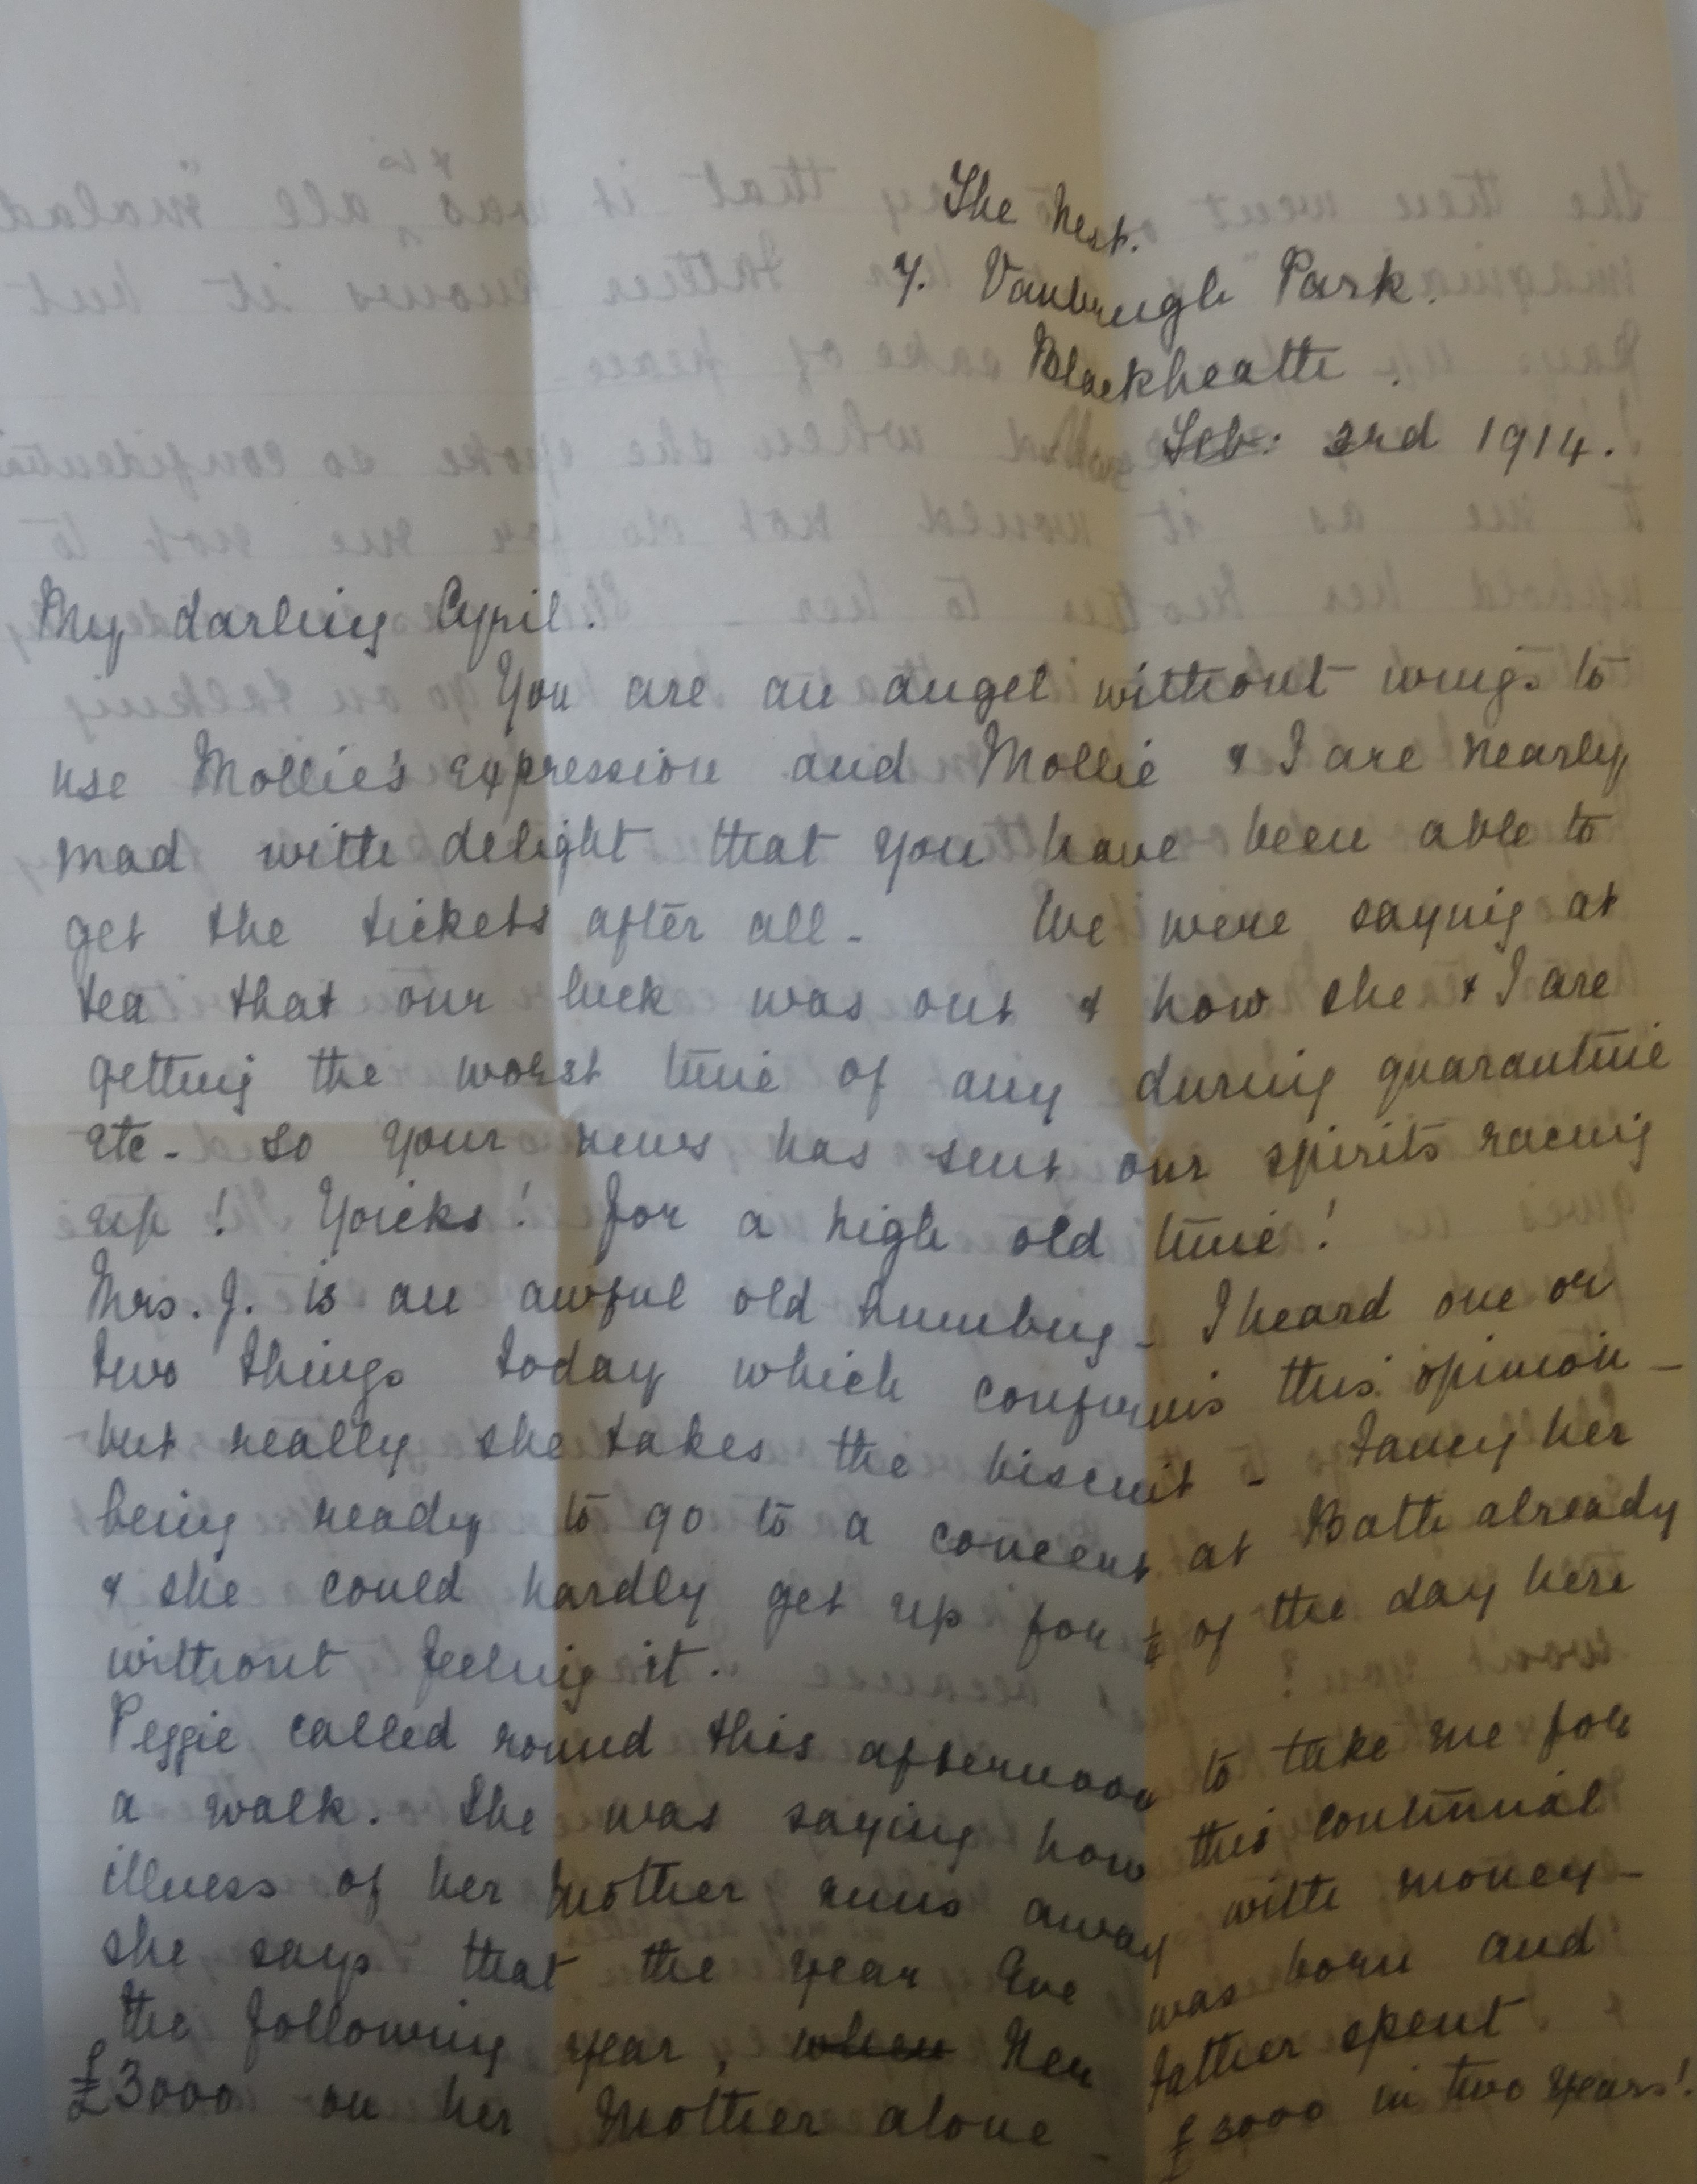 The Nest.
7. Vanbrugh Park.
Blackheath.
Feb: 3rd 1914.
My darling Cyril.
You are an angel without wings to
use Mollie's expression and Mollie & I are nearly
mad with delight that you have been able to
get the tickets after all - We were saying at
tea that our luck was out & how she & I are
getting the worst time of any during quarantine
etc - so your news has sent our spirits racing
up! Yoicks! for a high old time!
Mrs. J. is an awful old humbug - I heard one or
two things today which confirms this opinion -
but really she takes the biscuit - Fancy her
being ready to go to a concert at Bath already
& she could hardly get up for ½ of the day here
without feeling it.
Peggie called round this afternoon to take me for
a walk. She was saying how this continual
illness of her Mother runs away with money -
she says that the year Eve was born and
the following year, when Her father spent
£3000 on her Mother alone - £3000 in two years!